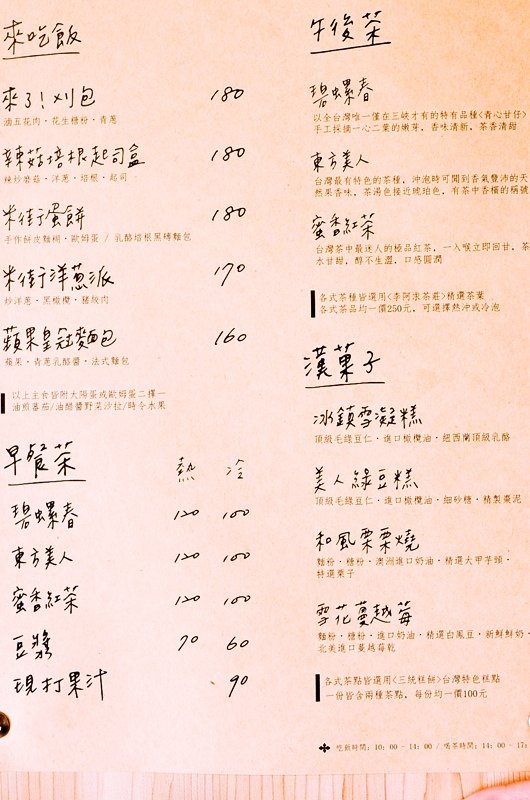 來吃飯
來了！刈包 180
滷五花肉‧花生糖粉‧青蔥
辣菇培根起司盒 180
辣炒磨菇‧洋蔥‧培根‧起司
米街蛋餅 180
手作餅皮麵糊‧歐姆蛋 / 乳酪培根黑磚麵包
米街洋蔥派 170
炒洋蔥‧黑橄欖‧豬絞肉
蘋果皇冠麵包 160
蘋果‧青蔥乳酪醬‧法式麵包
以上主食皆附太陽蛋或歐姆蛋二擇一
油煎蕃茄/油醋醬野菜沙拉/時令水果
早餐茶 熱 冷
碧螺春 120 100
東方美人 120 100
蜜香紅茶 120 100
豆漿 70 60
現打果汁 90
午後茶
碧螺春
以全台灣唯一僅在三峽才有的特有品種<青心甘仔>
手工採摘一心二葉的嫩芽，香味清新，茶香清甜
東方美人
台灣最有特色的茶種，沖泡時可聞到香氣豐沛的天
然果香味，茶湯色接近琥珀色，有茶中香檳的稱號
蜜香紅茶
台灣茶中最迷人的極品紅茶，一入喉立即回甘，茶
水甘甜，醇不生澀，口感圓潤
各式茶種皆選用<李阿求茶莊>精選茶葉
各式茶品均一價250元，可選擇熱沖或冷泡
漢菓子
冰鎮雪凝糕
頂級毛綠豆仁‧進口橄欖油‧紐西蘭頂級乳酪
美人綠豆糕
頂級毛綠豆仁‧進口橄欖油‧細砂糖‧精製棗泥
和風栗栗燒
麵粉‧糖粉‧澳洲進口奶油‧精選大甲芋頭‧
特選栗子
雪花蔓越莓
麵粉‧糖粉‧進口奶油‧精選白鳳豆‧新鮮鮮奶‧
北美進口蔓越莓乾
各式茶點皆選用<三統糕餅>台灣特色糕點
一份皆含兩種茶點，每份均一價100元
吃飯時間：10：00 - 14：00 / 喝茶時間：14：00 - 17：